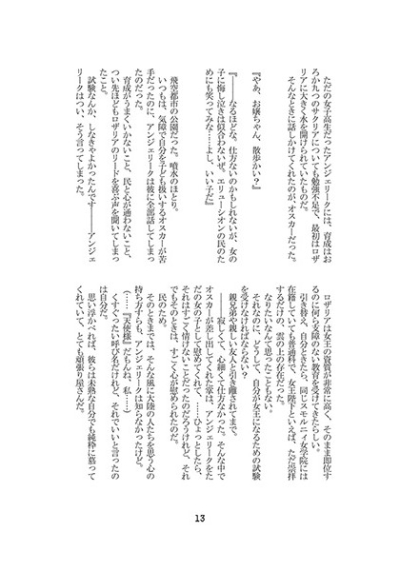 ただの女子高生だったアンジェリークには、育成はお
ろか九つのサクリアについても勉強不足で、最初はロザ
リアに大きく水を開けられていたものだ。
　そんなときに話しかけてくれたのが、オスカーだった。
『やあ、お嬢ちゃん、散歩かい？』
『――なるほどな、仕方ないのかもしれないが、女の
子に悔し泣きは似合わないぜ。エリューシオンの民のた
めにも笑ってみな……よし、いい子だ』
　飛空都市の公園だった。噴水のほとり。
　いつもは、気障で自分を子ども扱いするオスカーが苦
手だったのに、アンジェリークは彼に全部話してしまっ
たのだった。
　育成がうまくいかないこと、民と心が通わないこと、
つい先ほどもロザリアのリードを喜ぶ声を聞いてしまっ
たこと。
　試験なんか、しなきゃよかったんです――アンジェ
リークはつい、そう言ってしまった。
　ロザリアは女王の資質が非常に高く、そのまま即位す
るのに何ら支障のない教育を受けてきたらしい。
　引き替え、自分ときたら、同じスモルニィ女学院には
在籍していても普通科で、女王陛下といえば、ただ崇拝
するだけの、雲の上の存在だった。
　なりたいなんて思ったこともない。
　それなのに、どうして、自分が女王になるための試験
を受けなければならない？
　親兄弟や親しい友人と引き離されてまで。
　――寂しくて、心細くて仕方なかった。そんな中で
オスカーが差し出してくれた掌は、アンジェリークをた
だの女の子として慰めてくれて、……ひょっとしたら、
それはすごく情けないことだったのだろうけれど、それ
でもそのときは、すごく心が慰められたのだ。
　民のため。
　そのときまでは、そんな風に大陸の人たちを思う心の
持ち方すらも、アンジェリークは知らなかったけど。
（……『天使様』だもんね、私……）
　くすぐったい呼び名だけれど、それでいいと言ったの
は自分だ。
　思い浮かべれば、彼らは未熟な自分でも純粋に慕って
くれていて、とても頑張り屋さんだ。
13